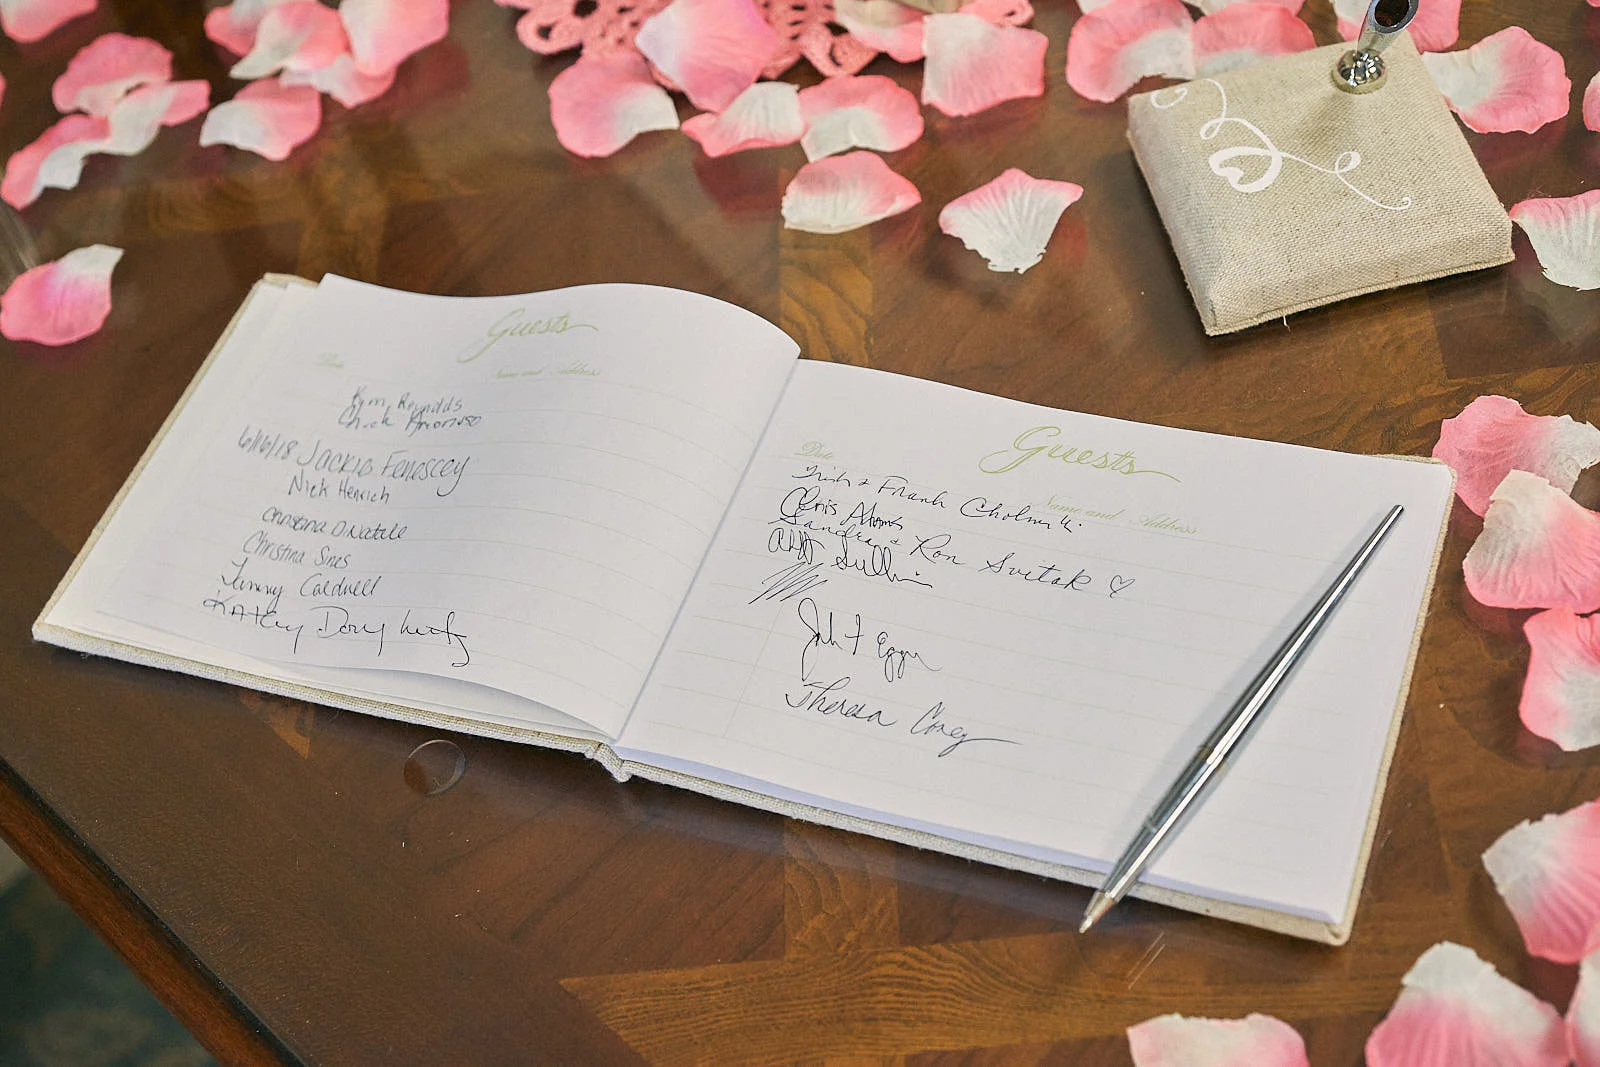 Guests
Date Name and Address
Kym Reynolds
Chuck Amoruso
6/16/18 Jackie Fenescey
Nick Henrich
Christina DiNatale
Christina Sines
Jimmy Caldwell
Kathy Dougherty
Guests
Date Name and Address
Trish & Frank
Chris Adams
Sandra & Ron Svitak ♡
Sullivan
John F Egger
Theresa Corey